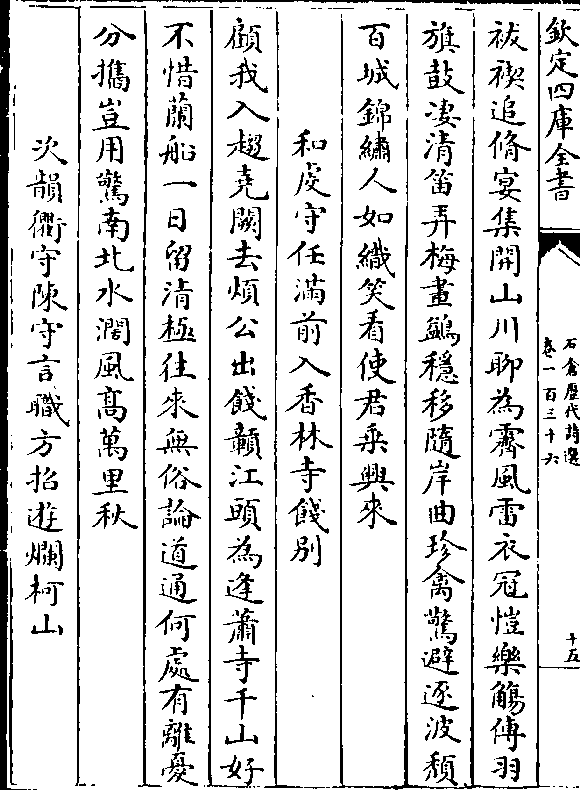 欽定四庫全書
石倉歷代詩選
卷一百三十六
十五
祓禊追脩宴集開山川聊為霽風雷衣冠愷樂觴傳羽
旗鼓凄清笛弄梅畫鷁穩移隨岸曲珍禽驚避逐波頽
百城錦繡人如織笑看使君乗興來
和虔守任滿前入香林寺餞别
顧我入趨堯闕去煩公出餞贑江頭為逢蕭寺千山好
不惜蘭船一日留清極往來無俗論道通何處有離憂
分攜豈用驚南北水濶風髙萬里秋
次韻衢守陳守言職方招遊爛柯山